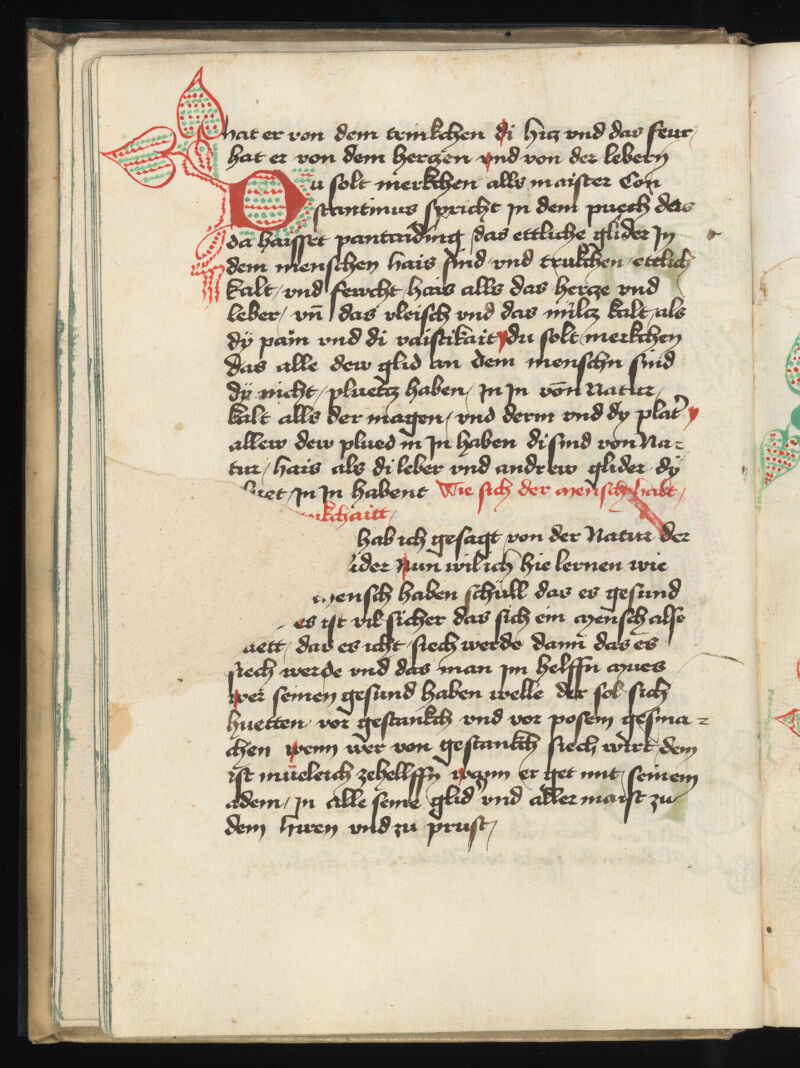 hat er von dem trinkchen di hicz vnd das feur,
hat er von dem herczen vnd von der lebern
Du solt merkchen alls maister Con
stantinus spricht jn dem puech das
da haisset pantaiding das ettliche glider jn
dem menschen hais sind vnd trukchen ettlich
kalt, vnd fewcht, hais alls das hercze vnd
leber, vn̄ das vleisch vnd das milcz kalt, als
dÿ pain vnd di vaistikait, du solt merkchen
das alle dew glid an dem menschn sind
dÿ nicht, pluetz haben, jn jn von Natur,
kalt alls der magen, vnd derm vnd dy plater
allew dew plued in jn haben di sind von Na=
tur, hais als di leber vnd andrew glider dÿ
pluet, jn jn habent Wie sich der mensch halt,
kchaitt,
hab ich gesagt von der Natur der
ider Nun wil ich hie lernen wie
mensch haben schüll das es gesund
es ist vil sicher das sich ein mensch also
uett, daz es icht siech werde dann das es
siech werde vnd das man jm helffn mues
wer seinen gesund haben welle der sol sich
huetten, vor gestankch vnd vor posem gesma=
chen wenn wer von gestankch siech wirt, dem
ist müeleich zehellffn wann er get mit seinem
adem, jn alle seine glid vnd aller maist zu
dem hiren vnd zu prust,